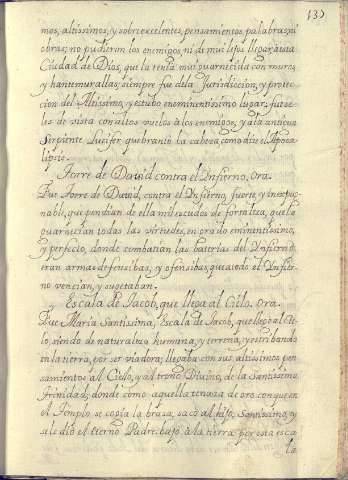 137
mos, altissimos, y sobreexcelentes, pensamientos, palabras, ni
obras; no pudieron los enemigos, ni de mui lejos llegar a esta
Ciudad de Dios, que la tenia mui guarnecida con muros
y hantemurallas; siempre fue de la Jurisdiccion, y protec-
cion del Altisimo, y estubo en eminentissimo lugar; fuese-
les de vista con altos vuelos a los enemigos, y a la antigua
Serpiente Lucifer quebranto la cabeza como dize el Apoca-
lipsis.
Torre de David contra el Infierno, ora.
Fue Torre de David, contra el Infierno, fuerte, y inexpug-
nable, que pendian de ella mil escudos de fortaleza, que la
guarnecian todas las virtudes, en grado eminentissimo,
y perfecto, donde combatian las baterias del Infierno
eran armas defensibas, y ofensibas, que a todo el Infier-
no vencian, y sugetaban.
Escala de Jacob, que llega al Cielo. ora.
Fue Maria Santissima, Escala de Jacob, que llego al Cie-
lo, siendo de naturaleza humana, y terrena, y estribando
en la tierra, por ser viadora; llegaba con sus altissimos pen-
samientos al Cielo, y al trono Divino, de la Santissima
Trinidad; donde como aquella tenaza de oro con que en
el Templo se cogia la brasa, saco al hijo, Santissimo, y
se le dio el eterno Padre bajo a la tierra por esta esca
la